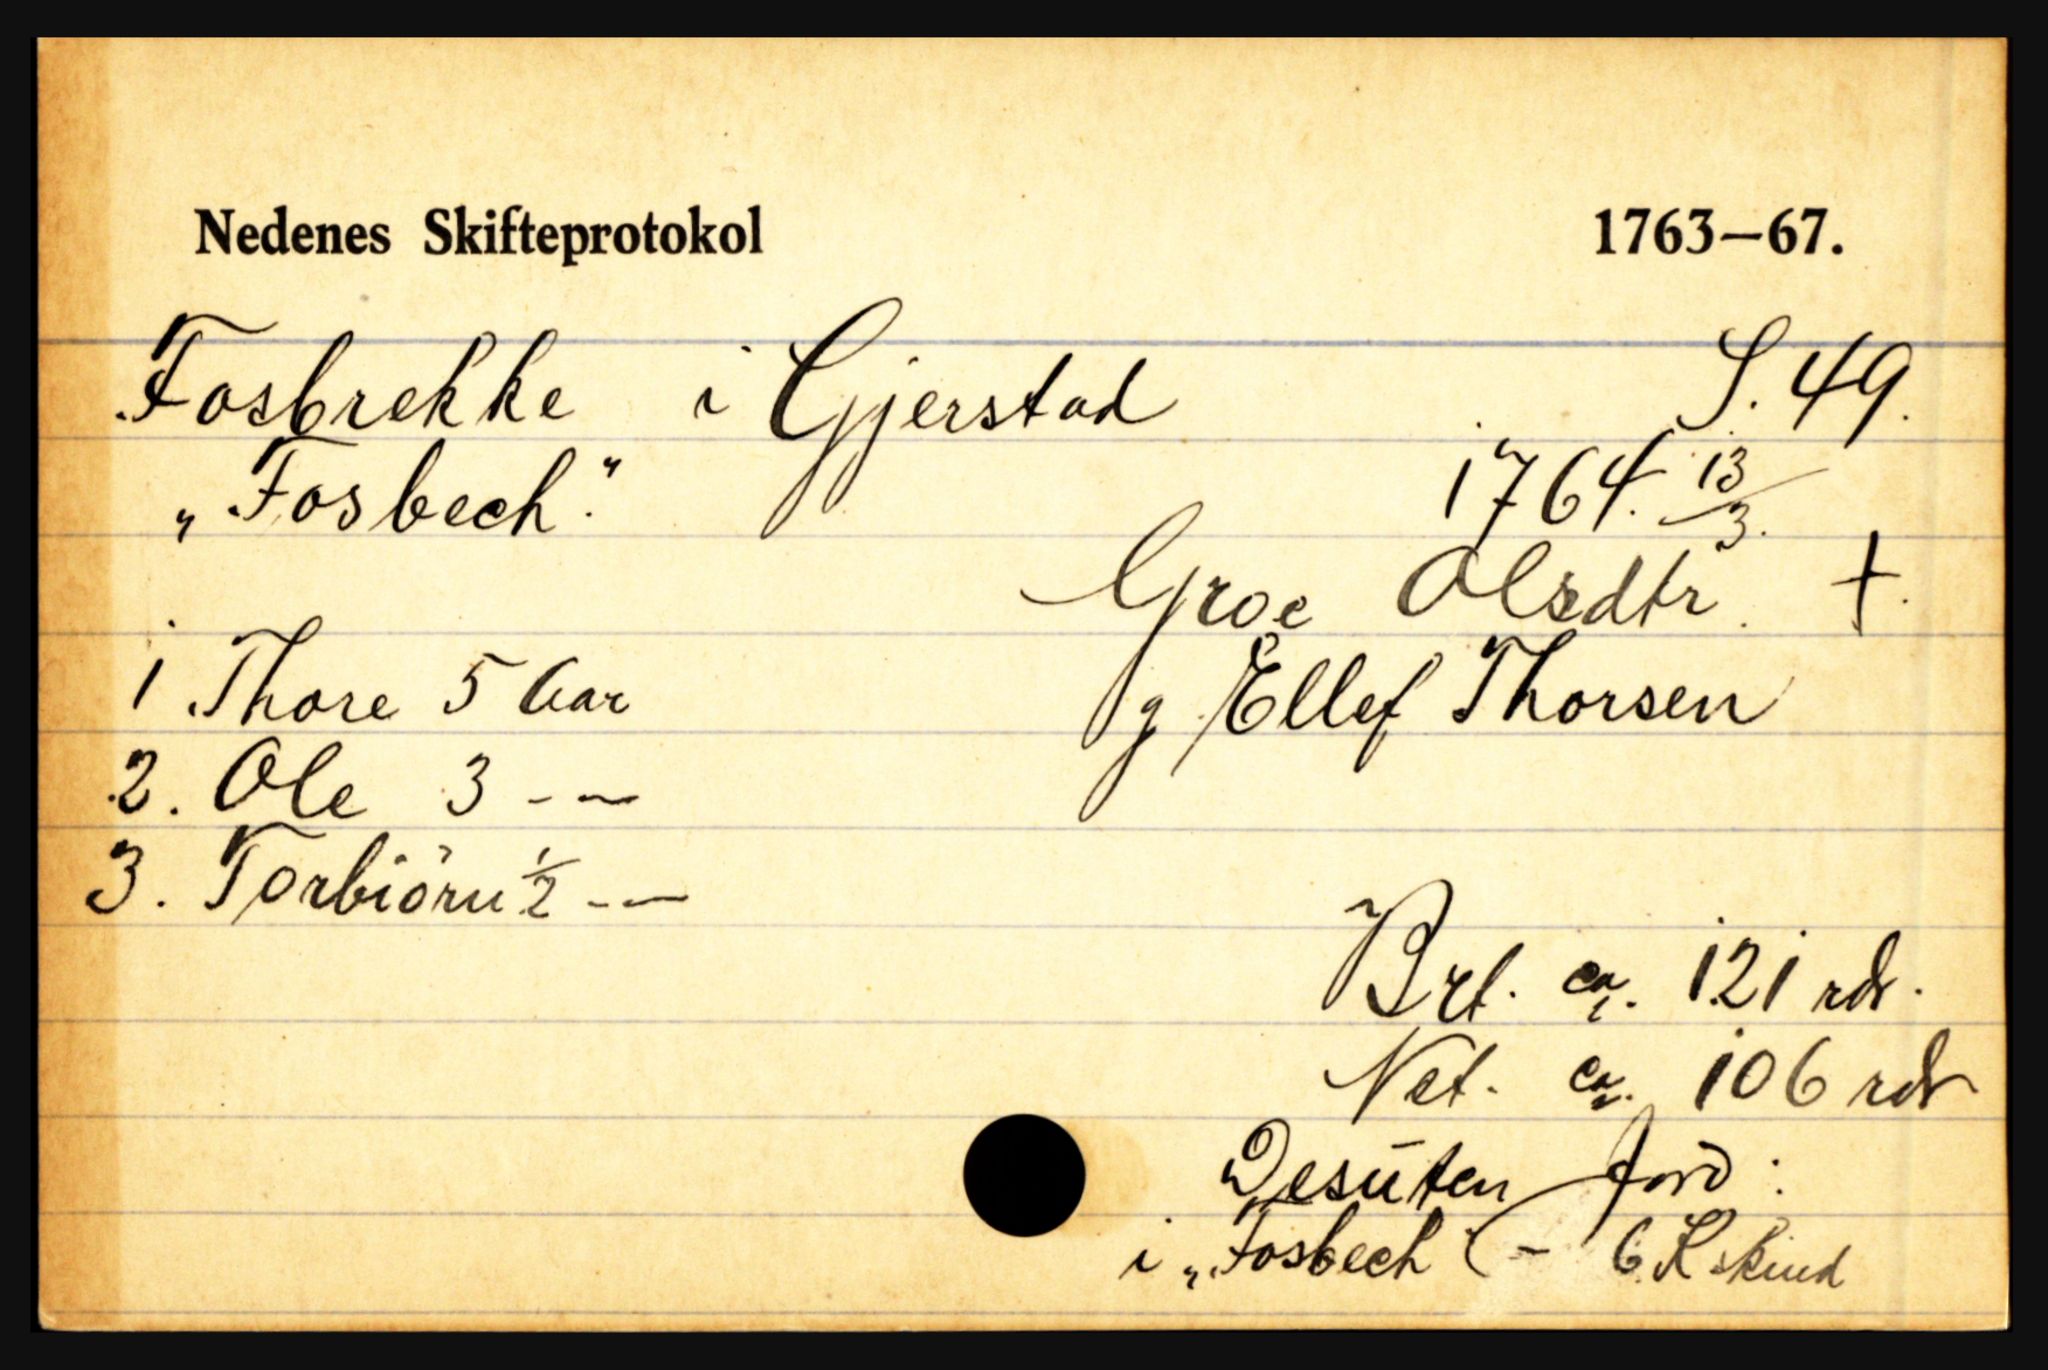 Nedenes Skifteprotokol 1763—67.
Fosbrekke i Gjerstad S. 49.
„Fosbech." 1764. 13/3.
Groe Olsdtr. †.
1 Thore 5 Aar g. Ellef Thorsen
2. Ole 3 - —
3. Torbiörn ½ - —
Brt. ca. 121 rdr.
Net. ca. 106 rdr
Desuten Jord:
i „Fosbech (- 6 K skind